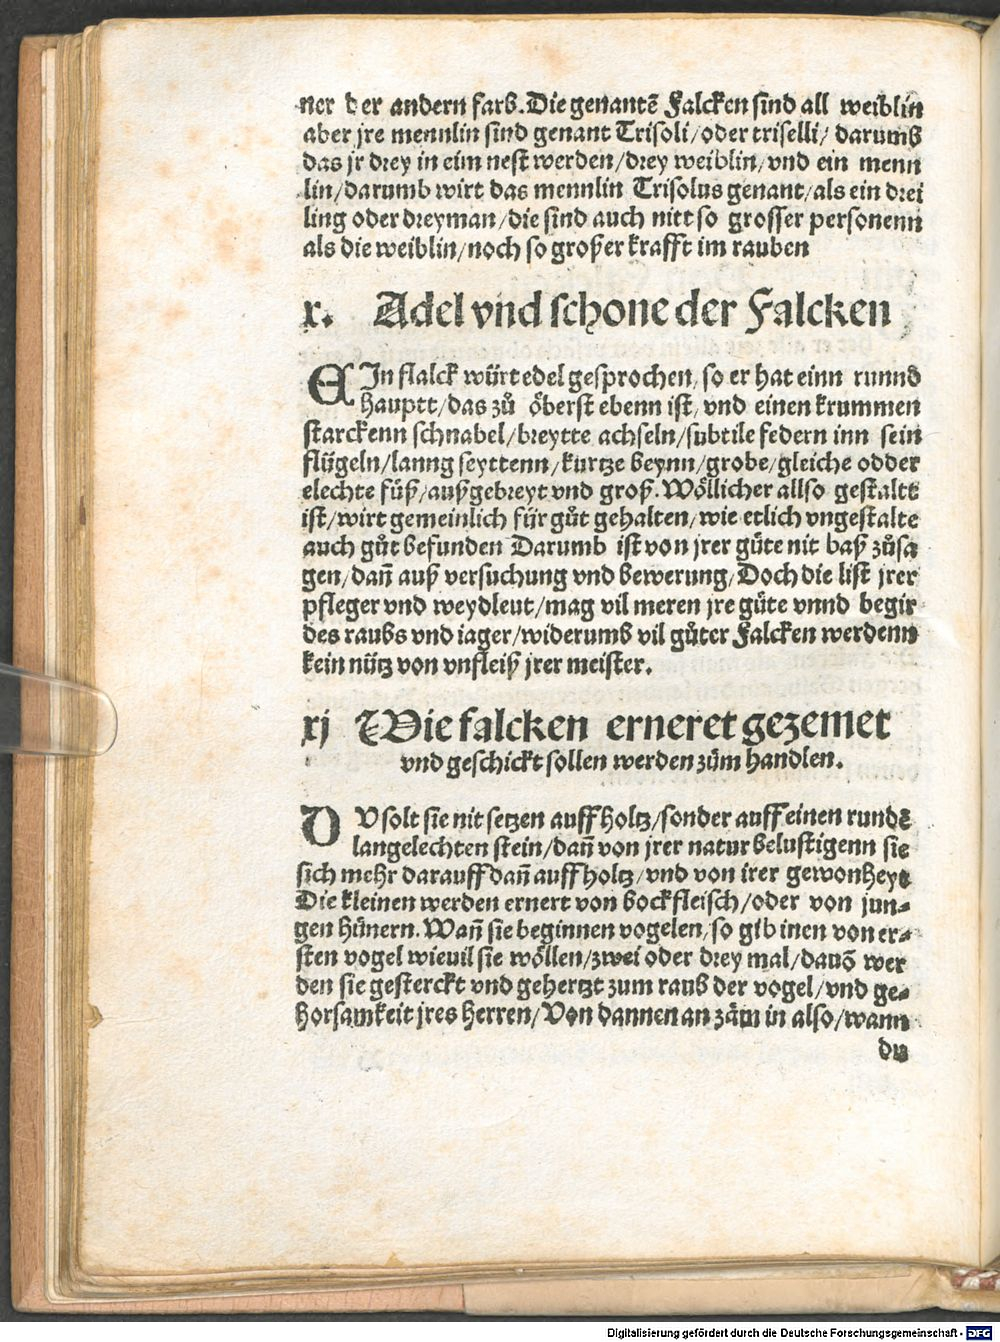 ner der andern farb. Die genantē Falcken sind all weiblin
aber jre mennlin sind genant Trisoli/oder triselli/ darumb
das jr drey in eim nest werden/drey weiblin/vnd ein menn
lin/darumb wirt das mennlin Trisolus genant/als ein drei
ling oder dreyman/die sind auch nitt so grosser personenn
als die weiblin/noch so großer krafft im rauben
x. Adel vnd schone der Falcken
EIn flalck würt edel gesprochen, so er hat einn runnd
hauptt/das zů öberst ebenn ist, vnd einen krummen
starckenn schnabel/breytte achseln/subtile federn inn sein
flügeln/lanng seyttenn/kurtze beynn/grobe/gleiche odder
elechte füß/außgebreyt vnd groß. Wöllicher allso gestaltt
ist/wirt gemeinlich für gůt gehalten/wie etlich vngestalte
auch gůt befunden Darumb ist von jrer güte nit baß zůsa
gen/dañ auß versuchung vnd bewerung/Doch die list jrer
pfleger vnd weydleut/mag vil meren jre güte vnnd begir
des raubs vnd iager/widerumb vil gůter Falcken werdenn
kein nütz von vnfleiß jrer meister.
xj Wie falcken erneret gezemet
vnd geschickt sollen werden zům handlen.
DV solt sie nit setzen auff holtz/sonder auff einen rundē
langelechten stein/dañ von jrer natur belustigenn sie
sich mehr darauff dañ auff holtz/vnd von irer gewonheyt
Die kleinen werden ernert von bockfleisch/oder von jun-
gen hünern. Wañ sie beginnen vogelen, so gib inen von er-
sten vogel wieuil sie wöllen/zwei oder drey mal/dauō wer
den sie gesterckt vnd gehertzt zum raub der vogel/vnd ge-
horsamkeit jres herren/Von dannen an zäm in also/wann
du
Digitalisierung gefördert durch die Deutsche Forschungsgemeinschaft - DFG